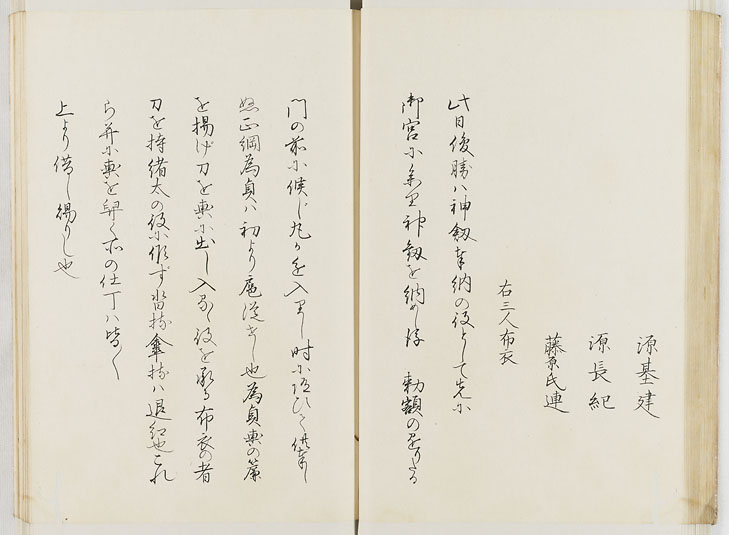 源基建
源長紀
藤原氏連
右三人布衣
此日俊勝ハ神劔奉納の役として先に
御宮に参り神劔を納めし後 勅額の
門の前に候し 入りし時に 供奉し
正綱為貞ハ初より扈従せし也為貞輿の簾
を揚げ刀を輿に出し入るゝ役を 布衣の者
刀を持緒太の役に 沓持傘持ハ退紅也これ
輿を舁く の仕丁ハ皆
上より借し賜りし也